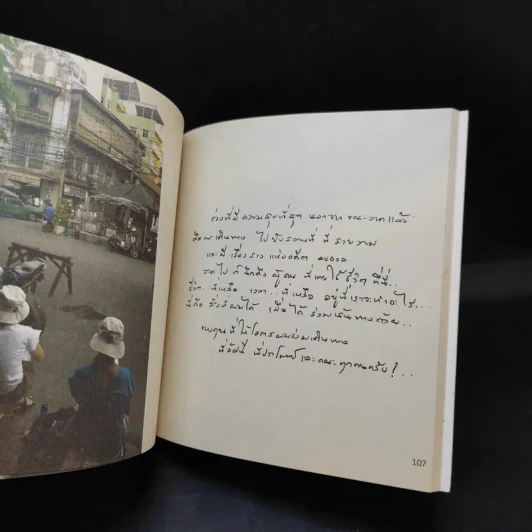 ช่วงที่มีความสุขที่สุด นอกจากขณะวาดแล้ว
คือการเดินทาง ไปยังสถานที่ ที่สวยงาม
และมี เรื่องราว แห่งอดีต
วาดไป ก็นึกถึง ผู้คน ที่เคยใช้ชีวิต ที่นี่..
ชีวิต.. ที่เหลือ เวลา.. ที่เหลือ อยู่ที่เราจะทำอะไร..
นี่คือ สิ่งที่ผมได้ เมื่อได้ ร่วมเดินทางด้วย..
ขอบคุณที่ให้โอกาสผมร่วมเดินทาง
และคณะทุกคนครับ!..
107